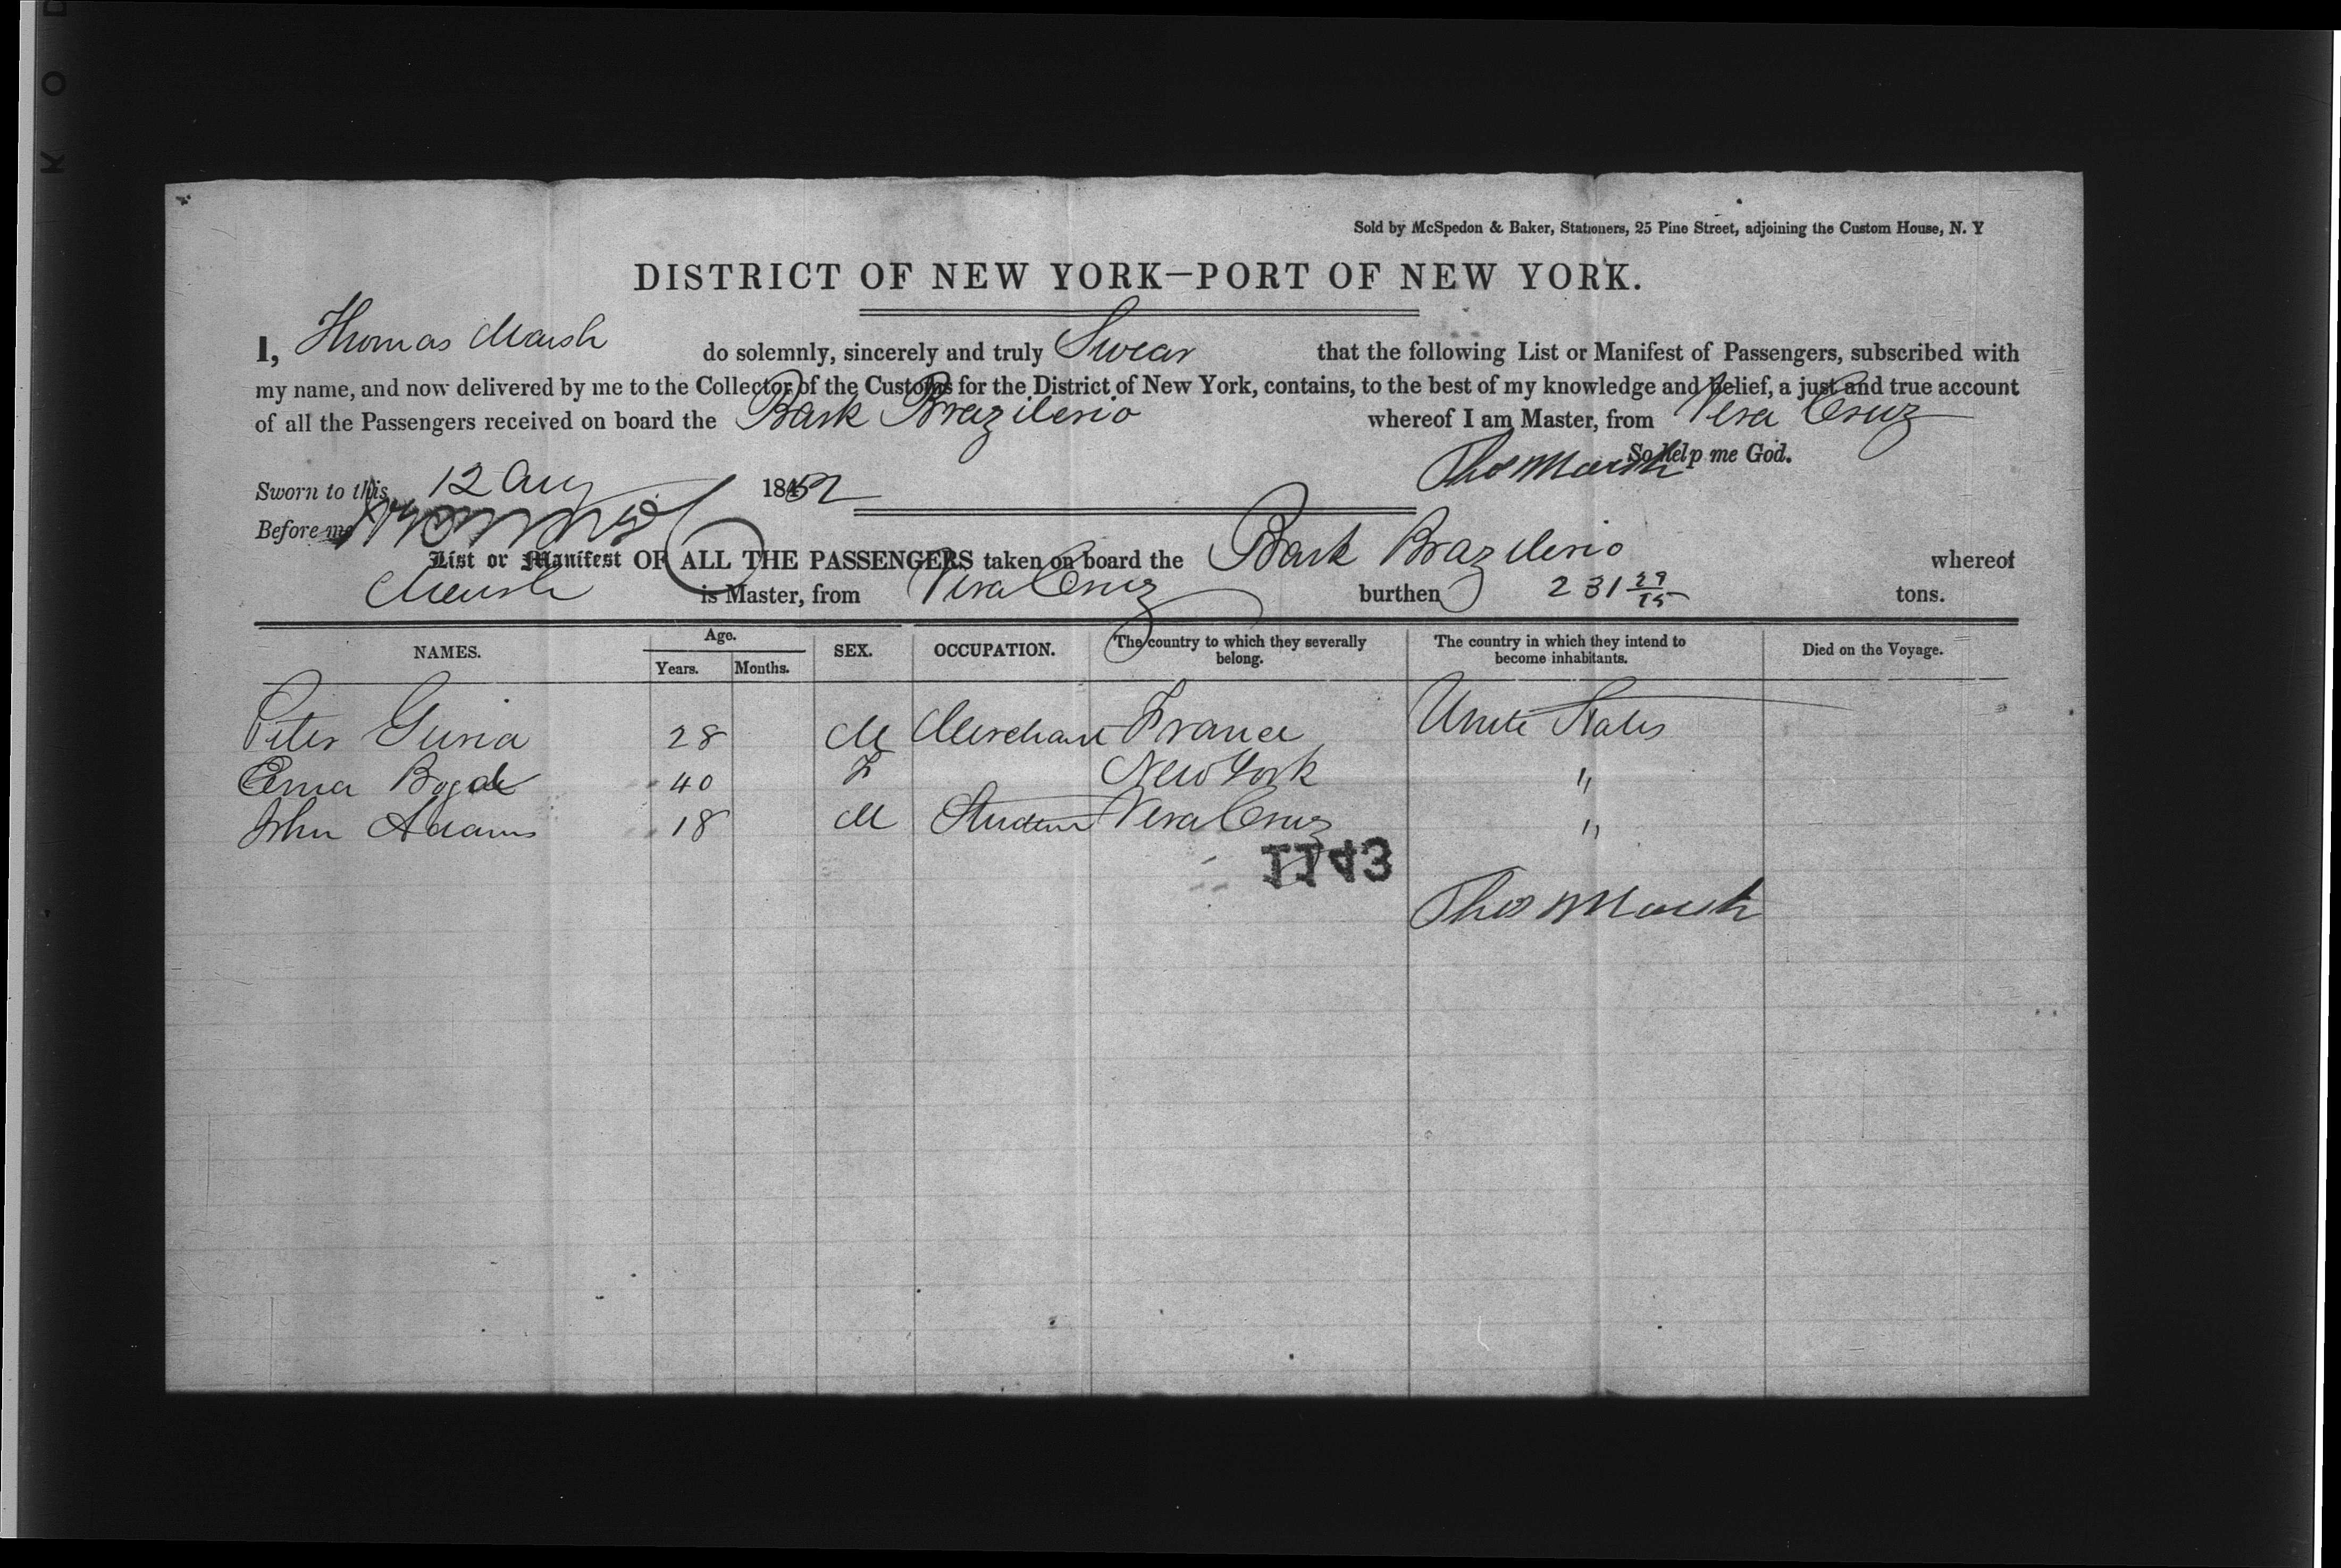 K O D
Sold by McSpedon & Baker, Stationers, 25 Pine Street, adjoining the Custom House, N. Y
DISTRICT OF NEW YORK—PORT OF NEW YORK.
I, Thomas Marsh do solemnly, sincerely and truly Swear that the following List or Manifest of Passengers, subscribed with
my name, and now delivered by me to the Collector of the Customs for the District of New York, contains, to the best of my knowledge and belief, a just and true account
of all the Passengers received on board the Bark Brazilerio whereof I am Master, from Vera Cruz
So Help me God.
Thos Marsh
Sworn to this 12 Aug 1852
Before me
List or Manifest OF ALL THE PASSENGERS taken on board the Bark Brazilerio whereof
Marsh is Master, from Vera Cruz burthen 231 tons.
NAMES. Age. Years. Months. SEX. OCCUPATION. The country to which they severally belong. The country in which they intend to become inhabitants. Died on the Voyage.
Peter 28 M Merchant France Unite States
40 F New York "
John Adams 18 M Student Vera Cruz "
1143
Thos Marsh